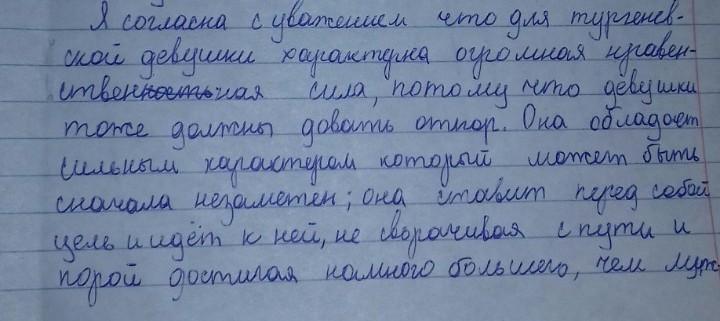 Я согласна с уважением что для тургенев-
ской девушки характерна огромная нравен-
ственностьная сила, потому что девушки
тоже должны довать отпор. Она обладает
сильным характером который может быть
сначала незаметен; она ставит перед собой
цель и идёт к ней, не сворачивая с пути и
порой достигая намного большего, чем муж